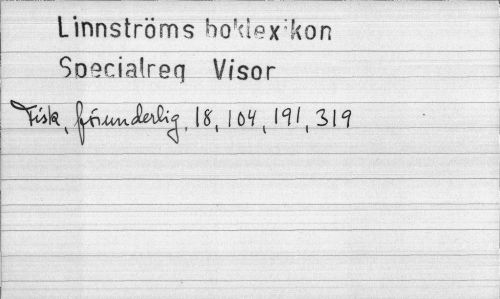 Linnströms boklexikon
Specialreg Visor
Fisk, förunderlig, 18, 104, 191, 319